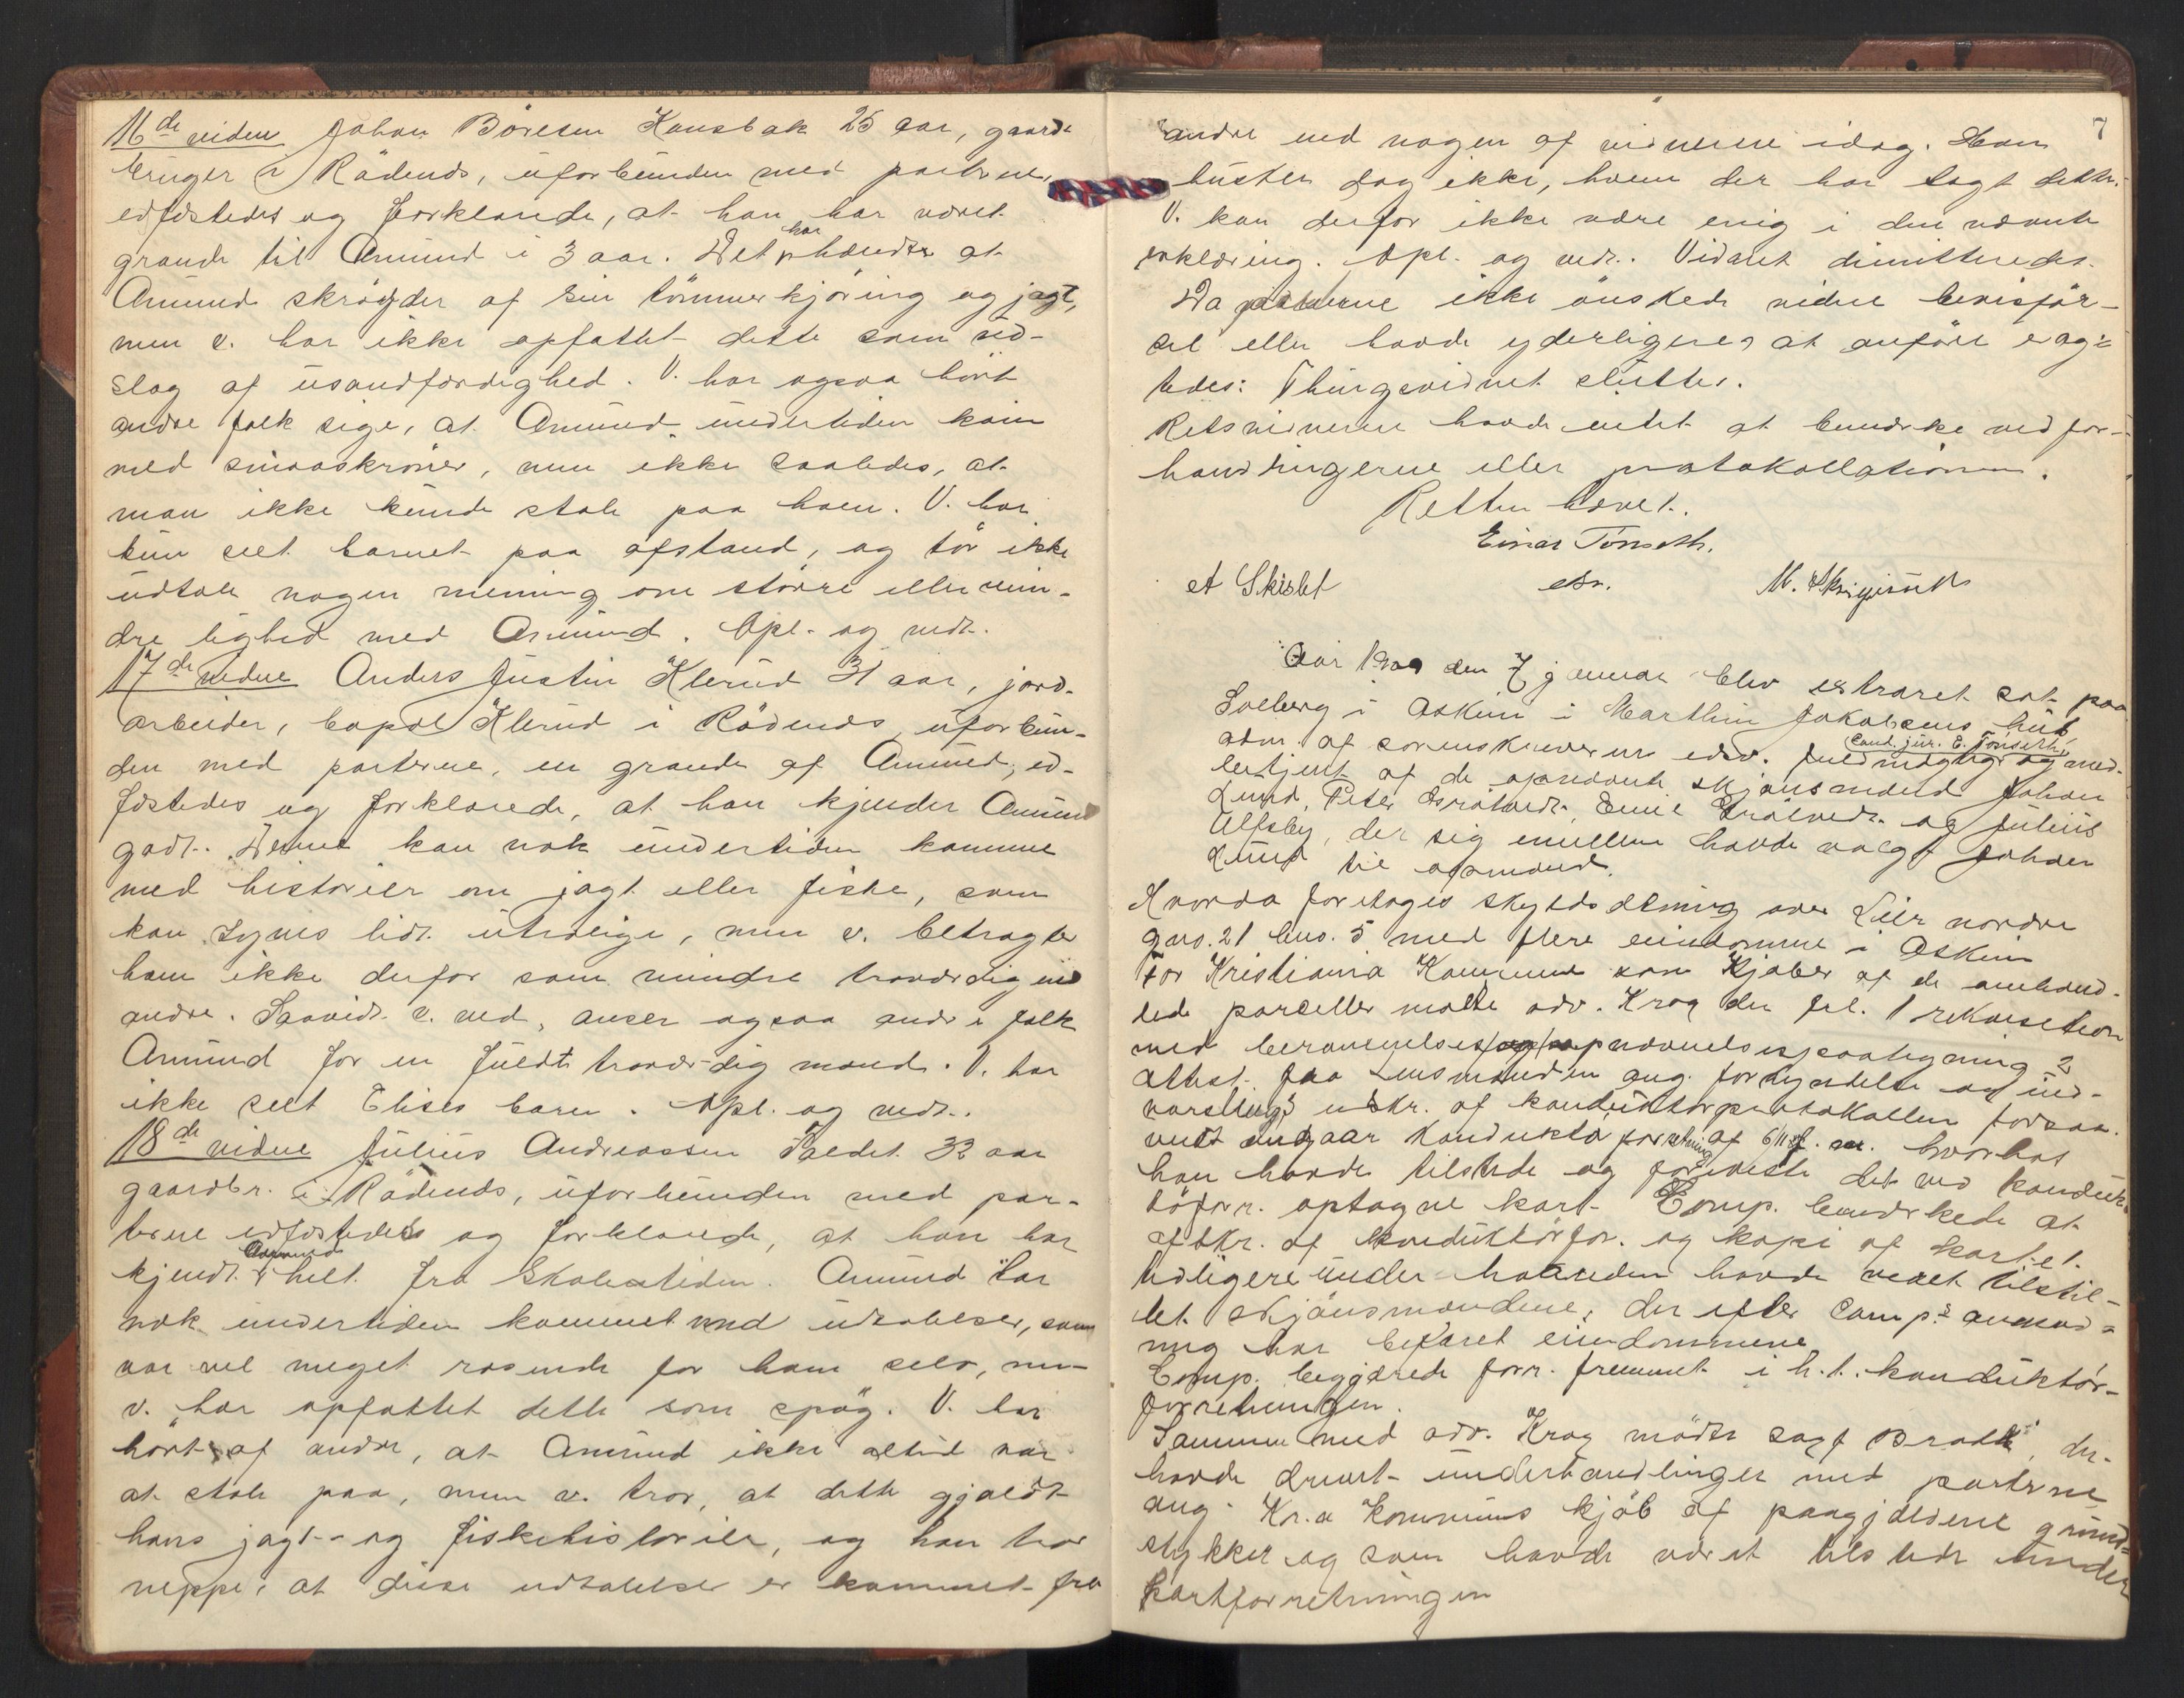 16de vidne Johan Böresen Konsbak 25 aar, gaard-
bruger i Rödenes, uforbunden med parterne,
edfæstedes og forklarede, at han har været
grande til Amund i 3 aar. Det har hændt at
Amund skrøyder af sin tømmerkjøring og jagt,
men v. har ikke opfattet dette som ud-
slag af usandfærdighed. V. har ogsaa hört
andre folk sige, at Amund undertiden kom
med smaaskrøner, men ikke saaledes, at
man ikke kunde stole paa ham. V. har
kun seet barnet paa afstand, og tör ikke
udtale nogen mening om större eller min-
dre lighed med Amund. Opl. og vedt.
17de vidne Anders Justin Klerud 31 aar, jord-
arbeider, bopæl Klerud i Rödenes, uforbun-
den med parterne, en grande af Amund, ed-
fæstedes og forklarede, at han kjender Amund
godt. Denne kan nok undertiden komme
med historier om jagt eller fiske, som
kan synes lidt utrolige, men v. betragter
ham ikke derfor som mindre troværdig end
andre. Saavidt v. ved, anser ogsaa andre folk
Amund for en fuldt troværdig mand. V. har
ikke seet Elises barn. Opl. og vedt.
18de vidne Julius Andreassen 32 aar
gaardbr. i Rödenes, uforbunden med par-
terne edfæstedes og forklarede, at han har
kjendt Amund helt fra skoletiden. Amund har
nok undertiden kommet med udtalelser, som
var vel meget rosende for ham selv, men
v. har opfattet dette som spög. V. har
hört af andre, at Amund ikke altid var
at stole paa, men v. tror, at dette gjaldt
hans jagt- og fiskehistorier, og han tror
neppe, at disse udtalelser er kommet fra
7
andre end nogen af vidnerne idag. Han
husker dog ikke, hvem der har sagt dette.
V. kan derfor ikke være enig i den nævnte
erklæring. Opl. og vedt. Vidnet dimitteredes.
Da parterne ikke önskede videre bevisför-
sel eller havde yderligere at anföre eragt-
edes: Thingsvidnet sluttes.
Retsvidnerne havde intet at bemærke ved for-
handlingerne eller protokollationen.
Retten hævet.
Einar Tönseth.
A Skislet
M.
Aar 1909 den 7 januar blev extraret sat paa
Solberg i Askim i Marthin Jakobsens hus
adm. af sorenskriverens edsv. fuldmægtig cand. jur. E. Tönseth og med-
betjent af de opnævnte skjönsmænd Johan
Lund, Peter, Emil og Julius
Ulfsby, der sig imellem havde valgt Johan
Lund til opmand.
Hvorda foretoges skylddeling over Lier nordre
gno. 21 bno. 5 med flere eiendomme i Askim
For Kristiania Kommune som kjöber af de omhand-
lede parceller mötte adv. Krag der frl. 1 rekvisition
med berammelses og opnævnelsespaategning 2
attest fra Lensmanden ang. forkyndelse og ind-
varsling 3 utskr. af konduktörprotokollen forsaa-
vidt angaar konduktörforretning af 6/11 hvorhos
han havde tilstede og foreviste det ved konduk-
törforr. optagne kart. Comp. bemærkede at
utskr. af konduktörfor. og kopi af kartet
tidligere under haanden havde været tilstil-
let skjönsmændene, der efter comp.s anmod-
ning har befaret eiendommene
Comp. begjærede forr. fremmet i h. t. konduktör-
forretningen.
Sammen med adv. Krag mödte sagf Bratt, der
havde drevet underhandlinger med parterne
ang. Kr.a kommunes kjöb af paagjældende grund-
stykker og som havde været tilstede under
kartforretningen